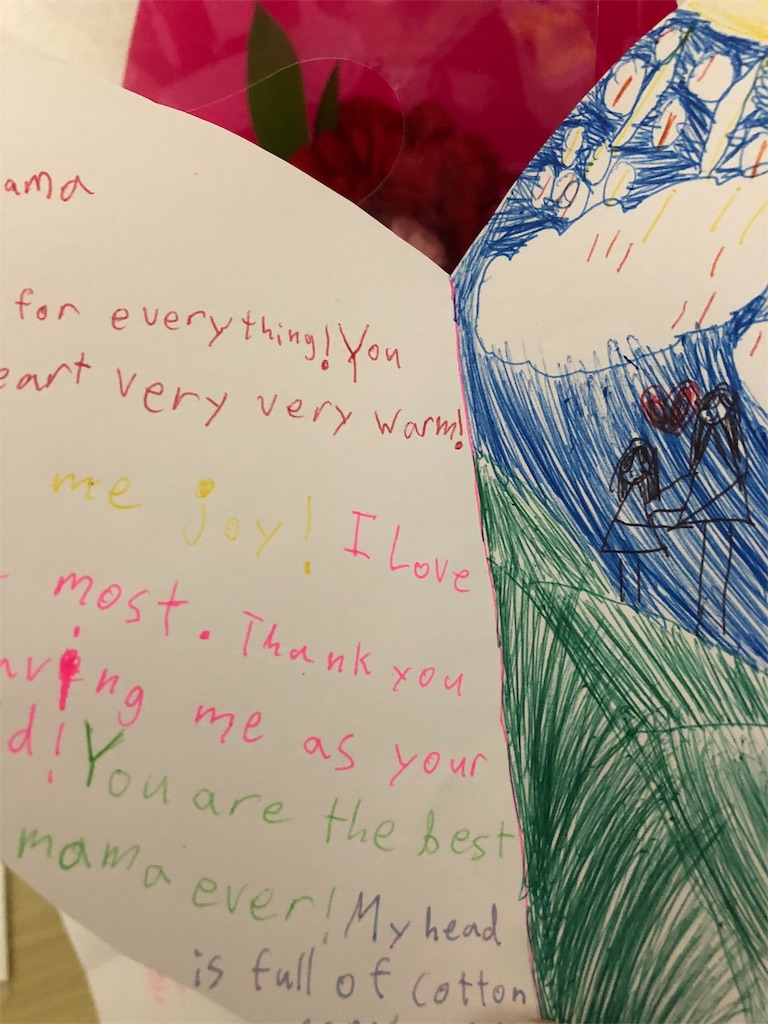 ama
for everything! You
eart very very warm!
me joy! I Love
most. Thank you
ving me as your
d! You are the best
mama ever! My head
is full of cotton